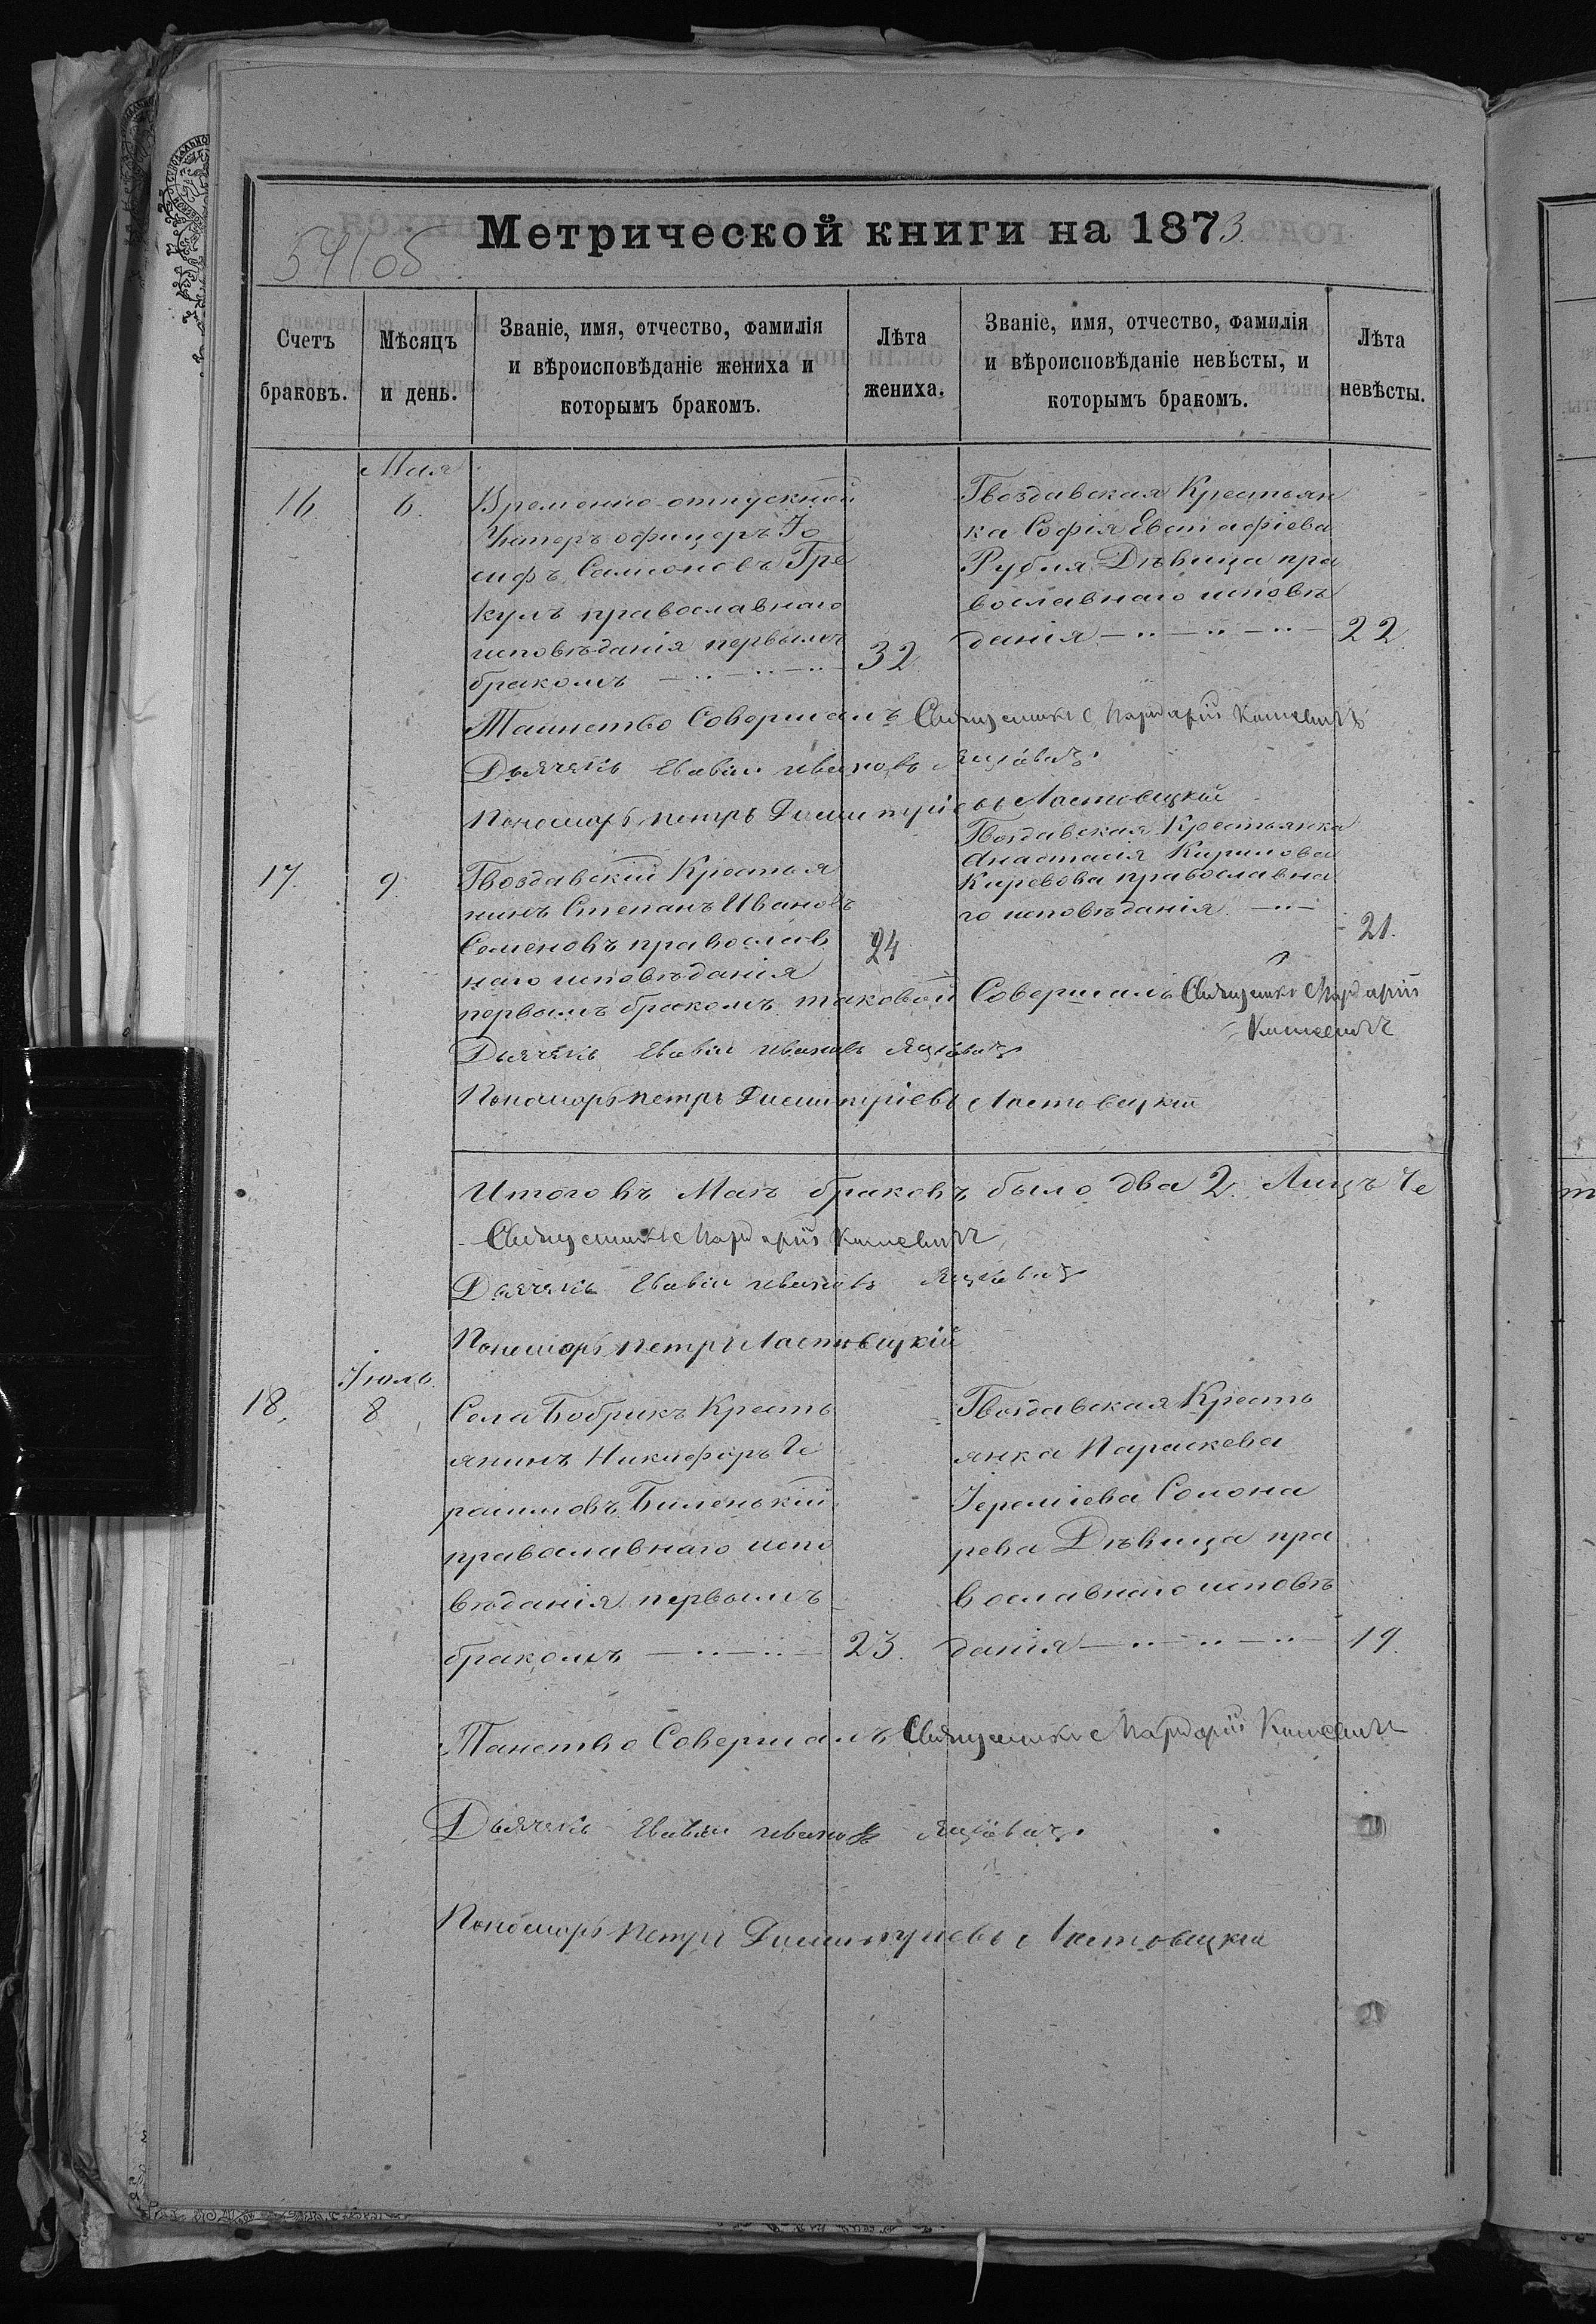 541об
Метрической книги на 1873.
Счетъ браковъ.
Мѣсяцъ и день.
Званіе, имя, отчество, фамилія
и вѣроисповѣданіе жениха и
которымъ бракомъ.
Лѣта жениха.
Званіе, имя, отчество, фамилія
и вѣроисповѣданіе невѣсты, и
которымъ бракомъ.
Лѣта невѣсты.
Мая
16
6.
Временно-отпускной
Унтеръ офицеръ Іо
сифъ Самоновъ Гре
кулъ православнаго
исповѣданія первымъ
бракомъ
32
Гвоздавская Крестьян
ка Софія Евстафіева
Рубля Дѣвица пра
вославнаго исповѣ
данія
22
Таинство Совершалъ Священникъ Мардарій
Дьячекъ Иванов
Пономарь Петръ Димитріевъ Ластовецкій
17.
9.
Гвоздавскій Крестья
нинъ Степанъ Ивановъ
Семеновъ православ
наго исповѣданія
первымъ бракомъ таковой Совершалъ Священникъ Мардарій
24
Гвоздавская Крестьянка
Анастасія Кирилова
православна
го исповѣданія
21.
Дьячекъ Иванов
Пономарь Петръ Димитріевъ Ластовецкій
Итого въ Маѣ браковъ было два 2. Лицъ Че
Священникъ Мардарій
Дьячекъ Иванов
Пономарь Петръ Ластовецкій
Іюль
18.
8
Села Бобрикъ Кресть
янинъ Никифоръ Ге
расимовъ Биленькій
православнаго испо
вѣданія первымъ
бракомъ
23.
Гвоздавская Кресть
янка Параскева
Іереміева Солона
рева Дѣвица пра
вославнаго исповѣ
данія
19.
Таинство Совершалъ Священникъ Мардарій
Дьячекъ Иванов
Пономарь Петръ Димитріевъ Ластовецкій